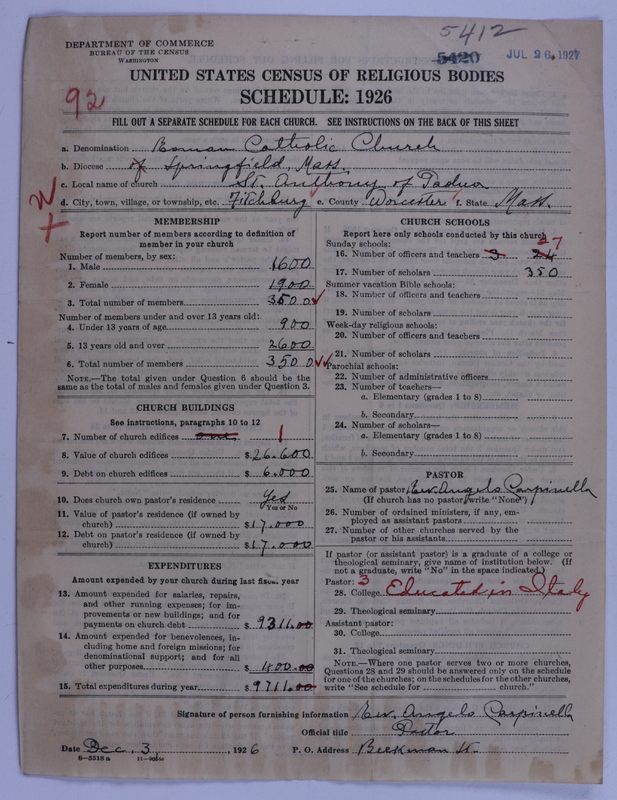 5412
DEPARTMENT OF COMMERCE
BUREAU OF THE CENSUS
WASHINGTON
5420
JUL 26, 1927
UNITED STATES CENSUS OF RELIGIOUS BODIES
SCHEDULE: 1926
92
FILL OUT A SEPARATE SCHEDULE FOR EACH CHURCH. SEE INSTRUCTIONS ON THE BACK OF THIS SHEET
a. Denomination Roman Catholic Church
b. Diocese of Springfield, Mass.
c. Local name of church St. Anthony of Padua
d. City, town, village, or township, etc. Fitchburg e. County Worcester f. State Mass.
MEMBERSHIP
Report number of members according to definition of
member in your church
Number of members, by sex:
1. Male 1600
2. Female 1900
3. Total number of members 3500
Number of members under and over 13 years old:
4. Under 13 years of age 900
5. 13 years old and over 2600
6. Total number of members 3500
NOTE.—The total given under Question 6 should be the
same as the total of males and females given under Question 3.
CHURCH BUILDINGS
See instructions, paragraphs 10 to 12
7. Number of church edifices one 1
8. Value of church edifices $26.600
9. Debt on church edifices $6.000
10. Does church own pastor's residence Yes
Yes or No
11. Value of pastor's residence (if owned by
church) $17.000
12. Debt on pastor's residence (if owned by
church) $17.000
EXPENDITURES
Amount expended by church during last fiscal year
13. Amount expended for salaries, repairs,
and other running expenses; for im-
provements or new buildings; and for
payments on church debt $9311.00
14. Amount expended for benevolences, in-
cluding home and foreign missions; for
denominational support; and for all
other purposes $400.00
15. Total expenditures during year $9711.00
CHURCH SCHOOLS
Report here only schools conducted by this church
Sunday schools:
27
16. Number of officers and teachers 3 24
17. Number of scholars 350
Summer vacation Bible schools:
18. Number of officers and teachers
19. Number of scholars
Week-day religious schools:
20. Number of officers and teachers
21. Number of scholars
Parochial schools:
22. Number of administrative officers
23. Number of teachers—
a. Elementary (grades 1 to 8)
b. Secondary
24. Number of scholars—
a. Elementary (grades 1 to 8)
b. Secondary
PASTOR
25. Name of pastor Rev. Angelo Carpinella
(If church has no pastor, write "None")
26. Number of ordained ministers, if any, em-
ployed as assistant pastors
27. Number of other churches served by the
pastor or his assistants
If pastor (or assistant pastor) is a graduate of a college or
theological seminary, give name of institution below. (If
not a graduate, write "No" in the space indicated.)
Pastor: 3
28. College Educated in Italy
29. Theological seminary
Assistant pastor:
30. College
31. Theological seminary
NOTE.—Where one pastor serves two or more churches,
Questions 28 and 29 should be answered only on the schedule
for one of the churches; on the schedules for the other churches,
write "See schedule for church."
Signature of person furnishing information Rev. Angelo Carpinella
Official title Pastor
Date Dec. 3, 1926 P. O. Address Beekman St.
8-5518a